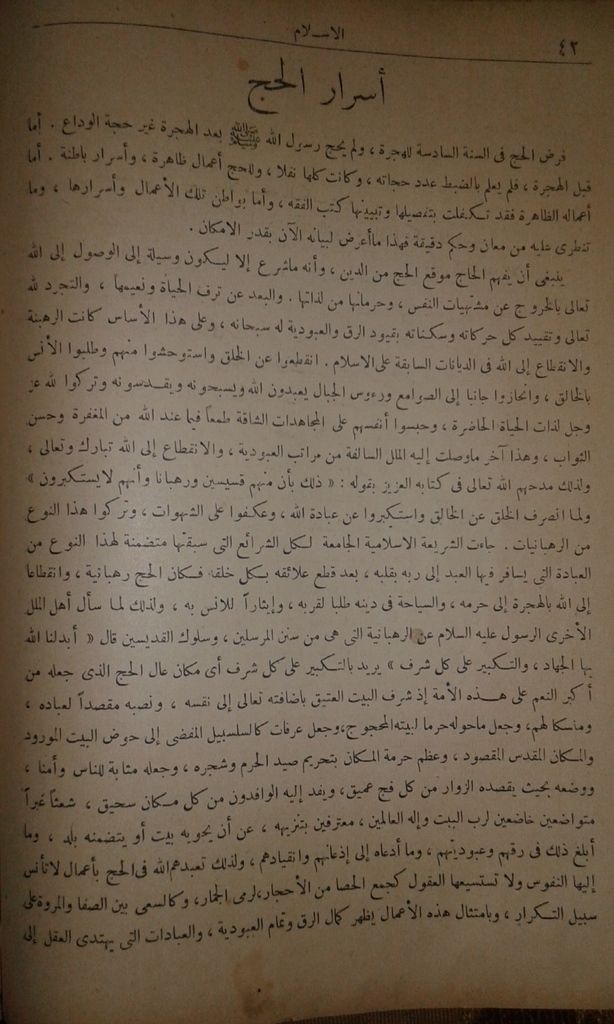 ٤٢
الاسلام
أسرار الحج
فرض الحج فى السنة السادسة للهجرة ، ولم يحج رسول الله ﷺ بعد الهجرة غير حجة الوداع . أما
قبل الهجرة ، فلم يعلم بالضبط عدد حجاته ، وكانت كلها نفلا ، وللحج أعمال ظاهرة ، وأسرار باطنة . أما
أعماله الظاهرة فقد تكفلت بتفصيلها وتبيينها كتب الفقه ، وأما بواطن تلك الأعمال وأسرارها ، وما
تنطوى عليه من معان وحكم دقيقة فهذا ماأعرض لبيانه الآن بقدر الامكان .
ينبغى أن يفهم الحاج موقع الحج من الدين ، وأنه ماشرع إلا ليكون وسيلة إلى الوصول إلى الله
تعالى بالخروج عن مشتهيات النفس ، وحرمانها من لذاتها . والبعد عن ترف الحياة ونعيمها ، والتجرد لله
تعالى وتقييد كل حركاته وسكناته بقيود الرق والعبودية له سبحانه ، وعلى هذا الأساس كانت الرهبنة
والانقطاع إلى الله فى الديانات السابقة على الاسلام . انقطعوا عن الخلق واستوحشوا منهم وطلبوا الأنس
بالخالق ، وانحازوا جانبا إلى الصوامع ورءوس الجبال يعبدون الله ويسبحونه ويقدسونه وتركوا لله عز
وجل لذات الحياة الحاضرة ، وحبسوا أنفسهم على المجاهدات الشاقة طمعا فيما عند الله من المغفرة وحسن
الثواب ، وهذا آخر ماوصلت إليه الملل السالفة من مراتب العبودية ، والانقطاع إلى الله تبارك وتعالى ،
ولذلك مدحهم الله تعالى فى كتابه العزيز بقوله : « ذلك بأن منهم قسيسين ورهبانا وأنهم لايستكبرون »
ولما انصرف الخلق عن الخالق واستكبروا عن عبادة الله ، وعكفوا على الشهوات ، وتركوا هذا النوع
من الرهبانيات . جاءت الشريعة الاسلامية الجامعة لكل الشرائع التى سبقتها متضمنة لهذا النوع من
العبادة التى يسافر فيها العبد إلى ربه بقلبه ، بعد قطع علائقه بكل خلقه فكان الحج رهبانية ، وانقطاعا
إلى الله بالهجرة إلى حرمه ، والسياحة فى دينه طلبا لقربه ، وإيثاراً للانس به ، ولذلك لما سأل أهل الملل
الأخرى الرسول عليه السلام عن الرهبانية التى هى من سنن المرسلين ، وسلوك القديسين قال « أبدلنا الله
بها الجهاد ، والتكبير على كل شرف » يريد بالتكبير على كل شرف أى مكان عال الحج الذى جعله من
أكبر النعم على هذه الأمة إذ شرف البيت العتيق باضافته تعالى إلى نفسه ، ونصبه مقصداً لعباده ،
ومنسكا لهم، وجعل ماحوله حرما لبيته المحجوج، وجعل عرفات كالسلسبيل المفضى إلى حوض البيت المورود
والمكان المقدس المقصود ، وعظم حرمة المكان بتحريم صيد الحرم وشجره ، وجعله مثابة للناس وأمنا ،
ووضعه بحيث يقصده الزوار من كل فج عميق، ويفد إليه الوافدون من كل مكان سحيق ، شعثاً غبراً
متواضعين خاضعين لرب البيت وإله العالمين ، معترفين بتنزيهه ، عن أن يحويه بيت أو يتضمنه بلد ، وما
أبلغ ذلك فى رقهم وعبوديتهم ، وما أدعاه إلى إذعانهم وانقيادهم ، ولذلك تعبدهم الله فى الحج بأعمال لاتأنس
إليها النفوس ولا تستسيغها العقول كجمع الحصا من الأحجار،لرمى الجمار، وكالسعى بين الصفا والمروة على
سبيل التكرار ، وبامتثال هذه الأعمال يظهر كمال الرق وتمام العبودية ، والعبادات التى يهتدى العقل إلى